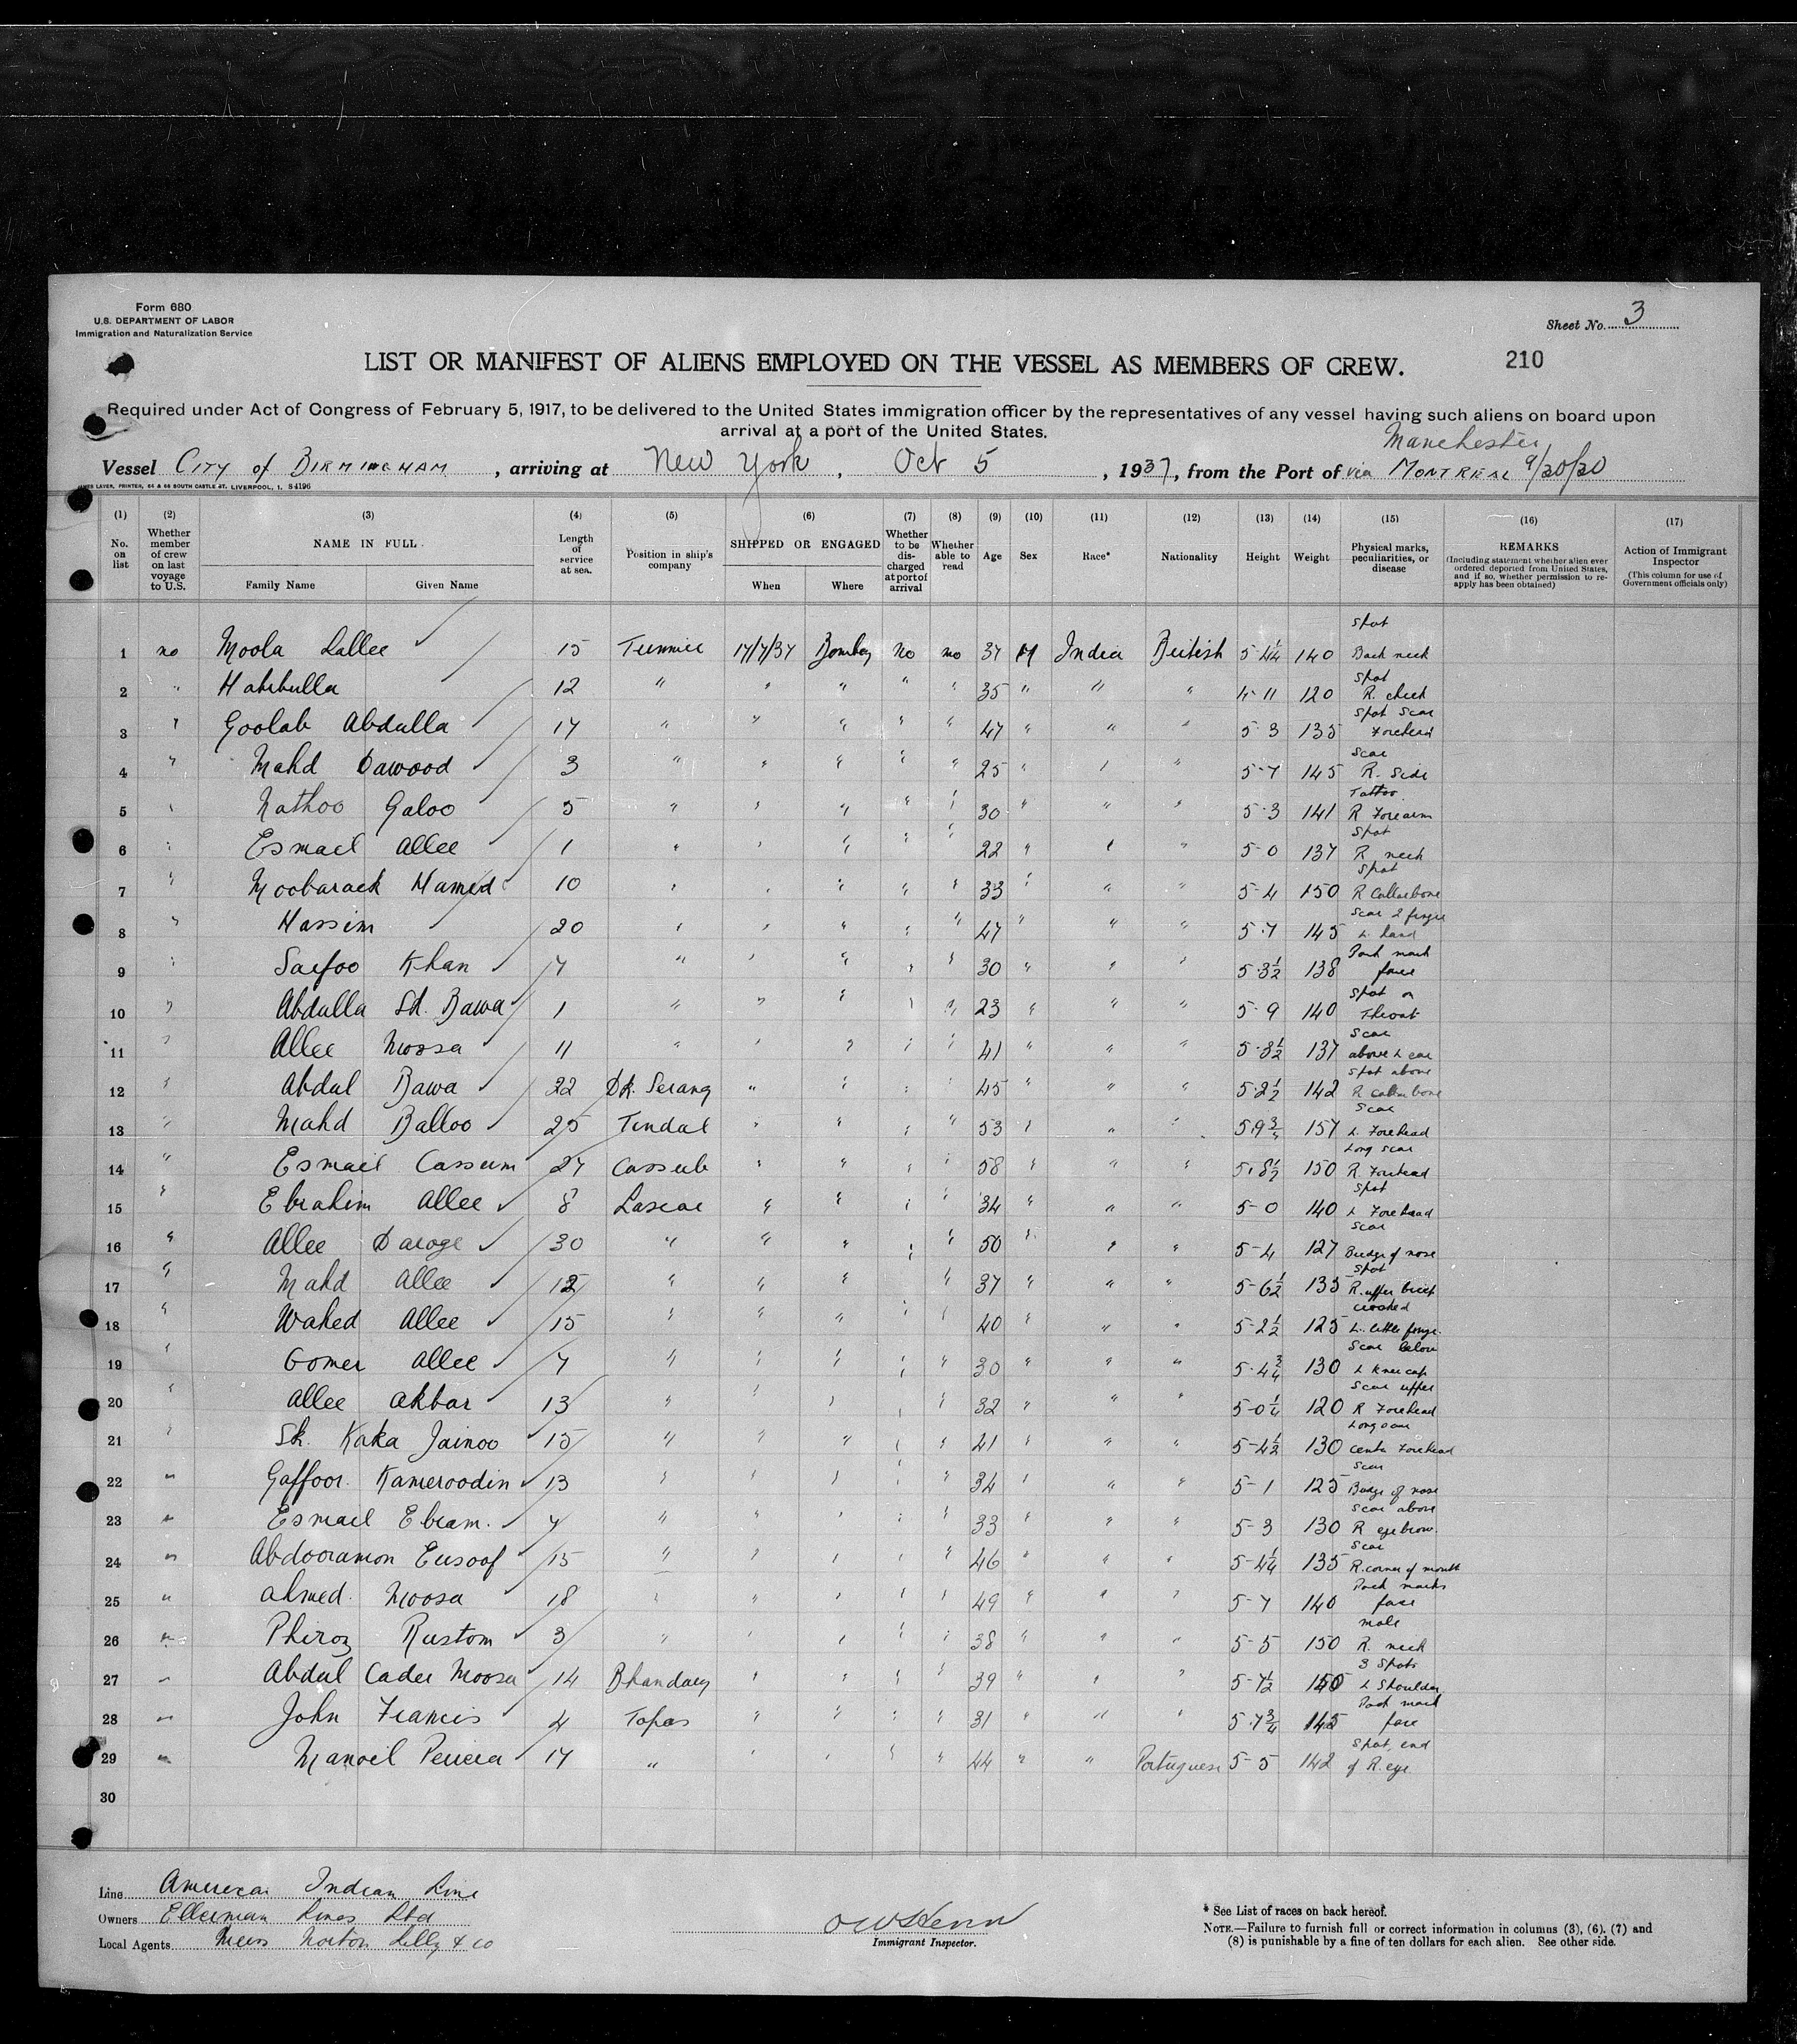 Form 680
U.S. DEPARTMENT OF LABOR
Immigration and Naturalization Service
Sheet No. 3
LIST OR MANIFEST OF ALIENS EMPLOYED ON THE VESSEL AS MEMBERS OF CREW.
210
Required under Act of Congress of February 5, 1917, to be delivered to the United States immigration officer by the representatives of any vessel having such aliens on board upon
arrival at a port of the United States.
Manchester
Vessel CITY of BIRMINGHAM, arriving at New York, Oct 5, 1937, from the Port of via MONTREAL 9/30/20
JAMES LAVER, PRINTER, 64 & 66 SOUTH CASTLE ST. LIVERPOOL, 1. S4196
(1) (2) (3) (4) (5) (6) (7) (8) (9) (10) (11) (12) (13) (14) (15) (16) (17)
No. on list
Whether member of crew on last voyage to U.S.
NAME IN FULL
Family Name Given Name
Length of service at sea.
Position in ship's company
SHIPPED OR ENGAGED
When Where
Whether to be discharged at port of arrival
Whether able to read
Age
Sex
Race*
Nationality
Height
Weight
Physical marks, peculiarities, or disease
REMARKS
(Including statement whether alien ever ordered deported from United States, and if so, whether permission to re-apply has been obtained)
Action of Immigrant Inspector
(This column for use of Government officials only)
1 no Moola Lallee 15 17/7/37 Bombay no no 37 M India British 5-4¼ 140 Spot Back neck
2 " Habibulla 12 " " " " " 35 " " " 4-11 120 Spot R. cheek
3 " Goolab Abdulla 17 " " " " " 47 " " " 5-3 135 Spot Scar Forehead
4 " Mahd Dawood 3 " " " " " 25 " " " 5-7 145 Scar R. Side
5 " Nathoo Galoo 5 " " " " " 30 " " " 5-3 141 Tattoo R Forearm
6 " Esmail Allee 1 " " " " " 22 " " " 5-0 137 Spot R neck
7 " Moobarack Hamed 10 " " " " " 33 " " " 5-4 150 Spot R Collarbone
8 " Hassim 20 " " " " " 47 " " " 5-7 145 Scar 2 finger L. hand
9 " Saifoo Khan 7 " " " " " 30 " " " 5-3½ 138 Pock mark face
10 " Abdulla Sk. Bawa 1 " " " " " 23 " " " 5-9 140 Spot on Throat
11 " Allee Moosa 11 " " " " " 41 " " " 5-3½ 137 Scar above L ear
12 " Abdul Bawa 22 Dk. Serang " " " " 45 " " " 5-2½ 142 Spot above R Collarbone
13 " Mahd Balloo 25 Tindal " " " " 53 " " " 5-9¾ 157 Scar L. Forehead
14 " Esmail Cassum 27 Cassub " " " " 58 " " " 5-8½ 150 Long scar R. Forehead
15 " Ebrahim Allee 8 Lascar " " " " 34 " " " 5-0 140 Spot L Forehead
16 " Allee Daroge 30 " " " " " 50 " " " 5-4 127 Scar Bridge of nose
17 " Mahd Allee 12 " " " " " 37 " " " 5-6½ 135 Spot R. upper
18 " Wahed Allee 15 " " " " " 40 " " " 5-2½ 125 crooked L. little finger
19 " Gomer Allee 7 " " " " " 30 " " " 5-4¾ 130 Scar below L knee cap
20 " Allee Akbar 13 " " " " " 32 " " " 5-0¼ 120 Scar upper R Forehead
21 " Sk. Kaka Jainoo 15 " " " " " 41 " " " 5-4½ 130 Long scar Centre Forehead
22 " Gaffoor Kameroodin 13 " " " " " 34 " " " 5-1 125 Scar Bridge of nose
23 " Esmail Ebram. 7 " " " " " 33 " " " 5-3 130 Scar above R eyebrow
24 " Abdooramon Eusoof 15 " " " " " 46 " " " 5-4¼ 135 Scar R. corner of mouth
25 " Ahmed Moosa 18 " " " " " 49 " " " 5-7 140 Pock marks face
26 " Phiroz Rustom 3 " " " " " 38 " " " 5-5 150 mole R. neck
27 " Abdul Cader Moosa 14 Bhandary " " " " 39 " " " 5-7½ 150 3 Spots L Shoulder
28 " John Francis 4 Topas " " " " 31 " " " 5-7¾ 145 Pock mark face
29 " Manoel Pereira 17 " " " " " 44 " " Portuguese 5-5 142 Spot, end of R. eye
30
Line American Indian Line
Owners Ellerman Lines Ltd
Local Agents Messrs Norton Lilly & Co
Immigrant Inspector.
* See List of races on back hereof.
NOTE.—Failure to furnish full or correct information in columns (3), (6), (7) and
(8) is punishable by a fine of ten dollars for each alien. See other side.